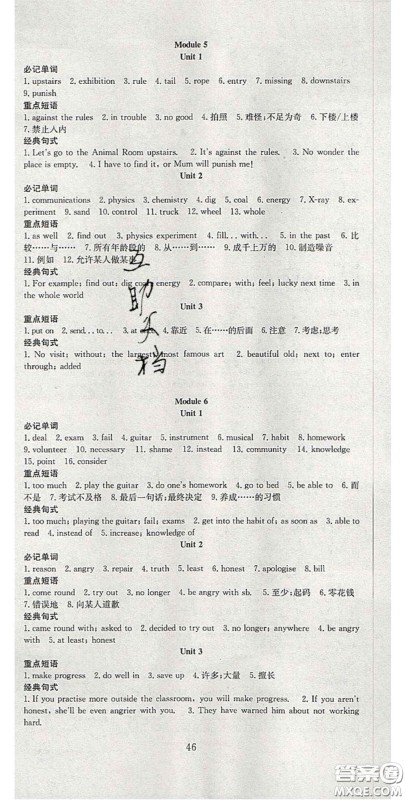 Module 5
Unit 1
必记单词
1. upstairs 2. exhibition 3. rule 4. tail 5. rope 6. entry 7. missing 8. downstairs
9. punish
重点短语
1. against the rules 2. in trouble 3. no good 4. 拍照 5. 难怪;不足为奇 6. 下楼/上楼
7. 禁止入内
经典句式
1. Let's go to the Animal Room upstairs. 2. It's against the rules. 3. No wonder the
place is empty. 4. I have to find it, or Mum will punish me!
Unit 2
必记单词
1. communications 2. physics 3. chemistry 4. dig 5. coal 6. energy 7. X-ray 8. ex-
periment 9. sand 10. control 11. truck 12. wheel 13. whole
重点短语
1. as well 2. find out 3. physics experiment 4. fill... with... 5. in the past 6. 比
较……与…… 7. 所有年龄段的 8. 从……到…… 9. 成千上万的 10. 制造噪音
11. 例如 12. 允许某人做某事
经典句式
1. For example; find out; dig coal; energy 2. compare; with; feel; lucky next time 3. in
the whole world
Unit 3
重点短语
1. put on 2. send... to... 3. at 4. 靠近 5. 在……的后面 6. 注意 7. 考虑;思考
经典句式
1. No visit; without; the largest; most famous art 2. beautiful old; next to; enter
through; added
互助文档
Module 6
Unit 1
必记单词
1. deal 2. exam 3. fail 4. guitar 5. instrument 6. musical 7. habit 8. homework
9. volunteer 10. necessary 11. shame 12. instead 13. community 14. knowledge
15. point 16. consider
重点短语
1. too much 2. play the guitar 3. do one's homework 4. go to bed 5. be able to 6. 而
不是 7. 考试不及格 8. 最后一句话;最终决定 9. 养成……的习惯
经典句式
1. too much; playing the guitar; fail; exams 2. get into the habit of; as soon as 3. able to
read 4. instead of 5. increase; knowledge of
Unit 2
必记单词
1. reason 2. angry 3. repair 4. truth 5. least 6. honest 7. apologise 8. bill
重点短语
1. come round 2. try out 3. no longer 4. be angry with sb. 5. 至少;起码 6. 零花钱
7. 错误地 8. 向某人道歉
经典句式
1. came round with 2. decided to try out 3. no longer; working 4. be angry
with 5. at least; honest
Unit 3
重点短语
1. make progress 2. do well in 3. save up 4. 许多;大量 5. 擅长
经典句式
1. If you practise more outside the classroom, you will make progress. 2. If you aren't
honest, she'll be even angrier with you. 3. They have warned him about not working
hard.
46
答案圈
MXQE.COM